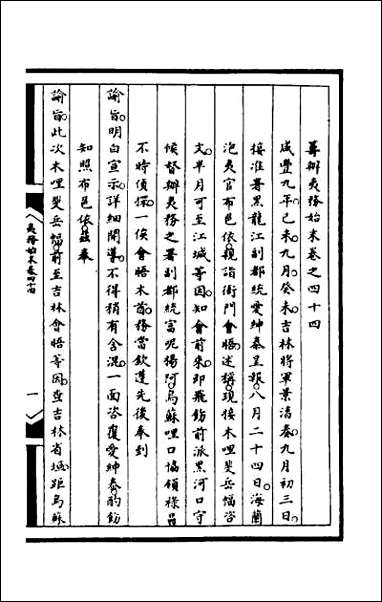 籌辦夷務始末卷之四十四
咸豐九年己未九月癸未吉林將軍景淳奏九月初三日
接准署黑龍江副都統愛紳泰呈報八月二十四日海蘭
泡夷官布邑依親詣衙門會晤述稱現接木哩斐岳幅咨
文半月可至江城等因知會前來即飛飭前派黑河口守
候督辦夷務之署副都統富呢揚阿烏蘇哩口協領祿昌
不時偵探一俟會晤木酋務當欽遵先後奉到
諭旨明白宣示詳細開導不得稍有含混一面咨覆愛紳泰酌飭
知照布邑依茲奉
諭旨此次木哩斐岳幅前至吉林會晤等因查吉林省垣距烏蘇
夷務始末卷四十四
一